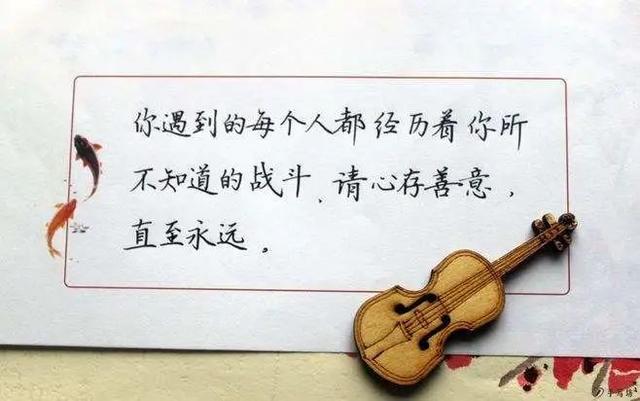 你遇到的每个人都经历着你所
不知道的战斗、请心存善意，
直至永远。
手写馆